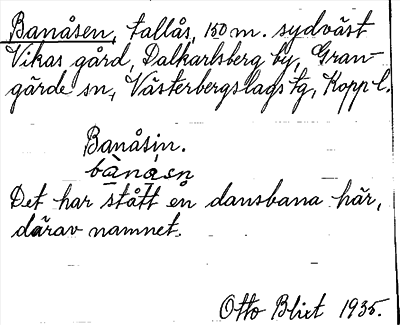 Banåsen, tallås, 150 m. sydväst
Vikas gård, Dalkarlsberg by, Gran-
gärde sn, Västerbergslags tg, Kopp l.
Banåsin.
bànåsen
Det har stått en dansbana här,
därav namnet.
Otto Blixt 1935.